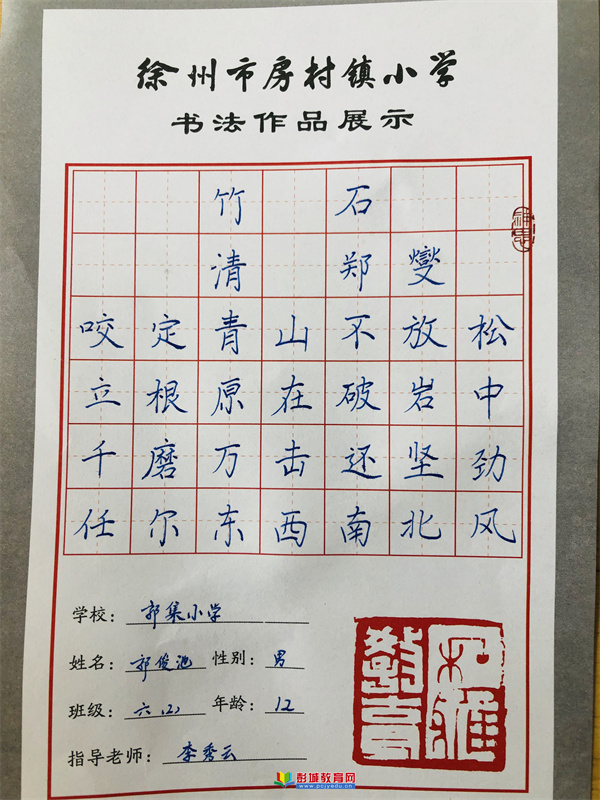 徐州市房村镇小学
书法作品展示
竹石
清 郑燮
咬定青山不放松
立根原在破岩中
千磨万击还坚劲
任尔东西南北风
学校：郭集小学
姓名：郭俊池 性别：男
班级：六（2） 年龄：12
指导老师：李秀云
彭城教育网
www.pcjyedu.cn